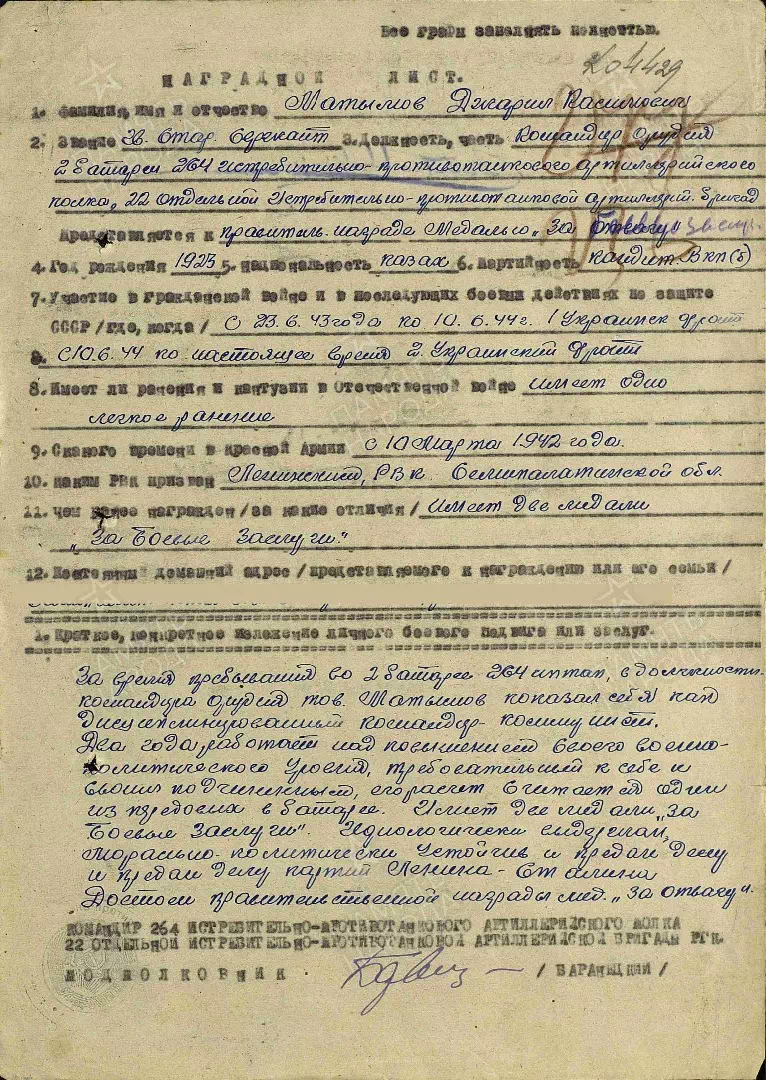 Все графы заполнять полностью.
НАГРАДНОЙ ЛИСТ.
1. фамилия, имя и отчество Матымов Джарил Касимович
2. Звание Зв. Стар. Сержант 3. Должность, часть Командир орудия
2 батареи 264 истребительно-противотанкового артиллерийского
полка, 22 отдельной истребительно-противотанковой артиллерий. бригад
Представляется к правитель. награде Медалью „За Отвагу"
4. Год рождения 1923 5. национальность казах 6. Партийность Кандит. ВКП(б)
7. Участие в гражданской войне и в последующих боевых действиях по защите
СССР /где, когда/ с 23.6.43 года по 10.6.44 г. 1 Украинск фронт
с 10.6.44 по настоящее время 2. Украинский Фронт
8. Имеет ли ранения и контузии в Отечественной войне имеет одно
легкое ранение
9. С какого времени в Красной Армии с 10 Марта 1942 года.
10. каким РВК призван Ленинский, РВК. Семипалатинской обл.
11. чем ранее награжден /за какие отличия/ имеет две медали
„За Боевые Заслуги"
12. Постоянный домашний адрес /представляемого к награждению или его семьи/
1. Краткое, конкретное изложение личного боевого подвига или заслуг.
За время пребывания во 2 батареи 264 иптап, в должности
командира орудия тов. Матымов показал себя как
Дисциплинированный командир-коммунист.
Два года работает над повышением своего военно-
политического Уровня, требовательный к себе и
своим подчиненным, его расчет считается один
из передовых в батареи. Имеет две медали „За
Боевые Заслуги". Идиологически выдержан,
Морально-политически Устойчив и предан Делу
и предан делу партии Ленина-Сталина
Достоен правительственной награды мед. „За отвагу".
КОМАНДИР 264 ИСТРЕБИТЕЛЬНО-ПРОТИВОТАНКОВОГО АРТИЛЛЕРИЙСКОГО ПОЛКА
22 ОТДЕЛЬНОЙ ИСТРЕБИТЕЛЬНО-ПРОТИВОТАНКОВОЙ АРТИЛЛЕРИЙСКОЙ БРИГАДЫ РГК.
ПОДПОЛКОВНИК /БАРАНЕЦКИЙ/